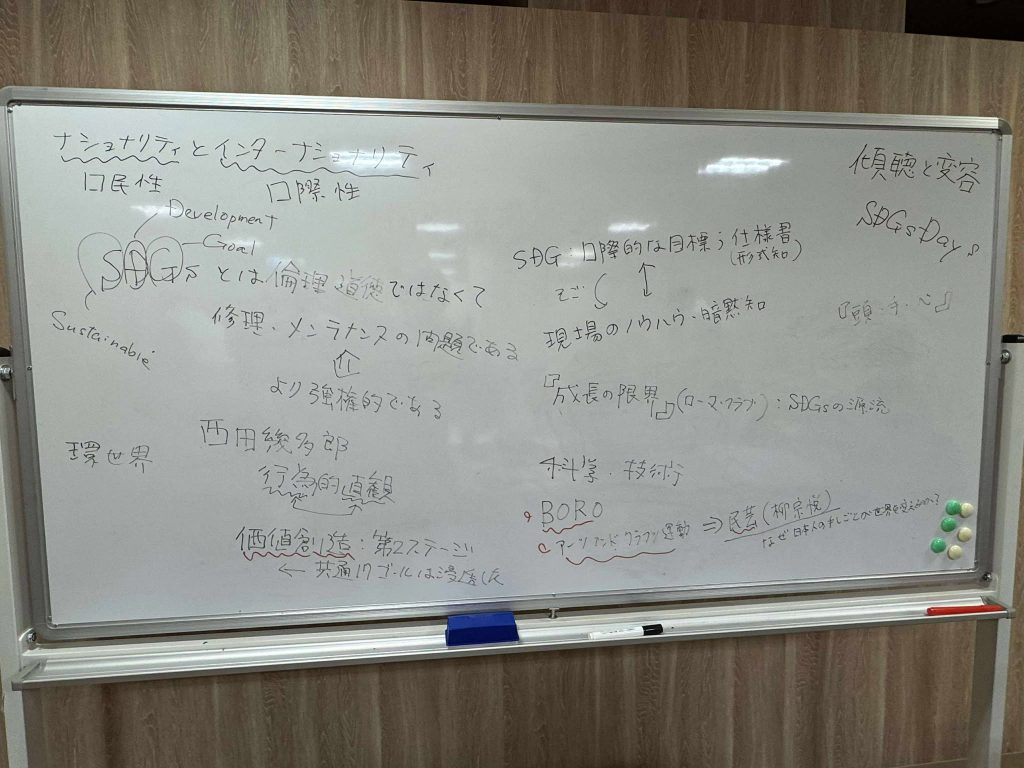 ナショナリティとインターナショナリティ
口民性
口際性
Development
Goal
SDGsとは倫理・道徳ではなくて
Sustainable
修理・メンテナンスの問題である
より強権的である
西田幾多郎
環世界
行為的直観
価値創造:第2ステージ
← 共通17ゴールは浸透した
傾聴と変容
SDGs Days
SDG:口際的な目標う仕様書
(形式知)
現場のノウハウ・暗黙知
『頭・手・心』
『成長の限界』(ローマ・クラブ):SDGsの源流
科学・技術
BORO
アーツアンドクラフツ運動 ⇒ 民芸(柳宗悦)
なぜ日本人の手しごとが世界を変えるのか?